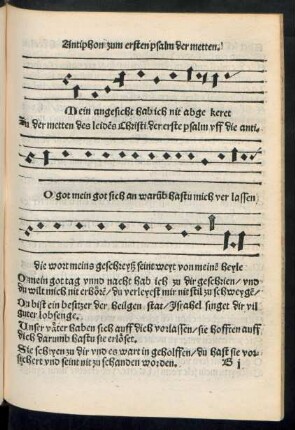 Antiphon zum ersten psalm der metten.
Mein angesicht hab ich nit abge keret
Zu der metten des leidẽs Christi der erste psalm vff die anti⸗
O got mein got sich an warũb hastu mich ver lassen
die wort meins geschreyß seint weyt von meinẽ heyle
O mein got tag vnnd nacht hab ich zu dir geschrien/ vnd
du wilt mich nit erhörẽ/ du verleyest mir nit stil zu schweygẽ/
Du bist ein besitzer der heilgen stat/ Jsrahel singet dir vil
guter lobsenge.
Unser väter haben sich auff dich vorlassen/ sie hofften auff
dich darumb hastu sie erlöset.
Sie schryen zu dir vnd es wart in geholffen/ du hast sie vor⸗
sichert vnd seint nit zu schanden worden. B i